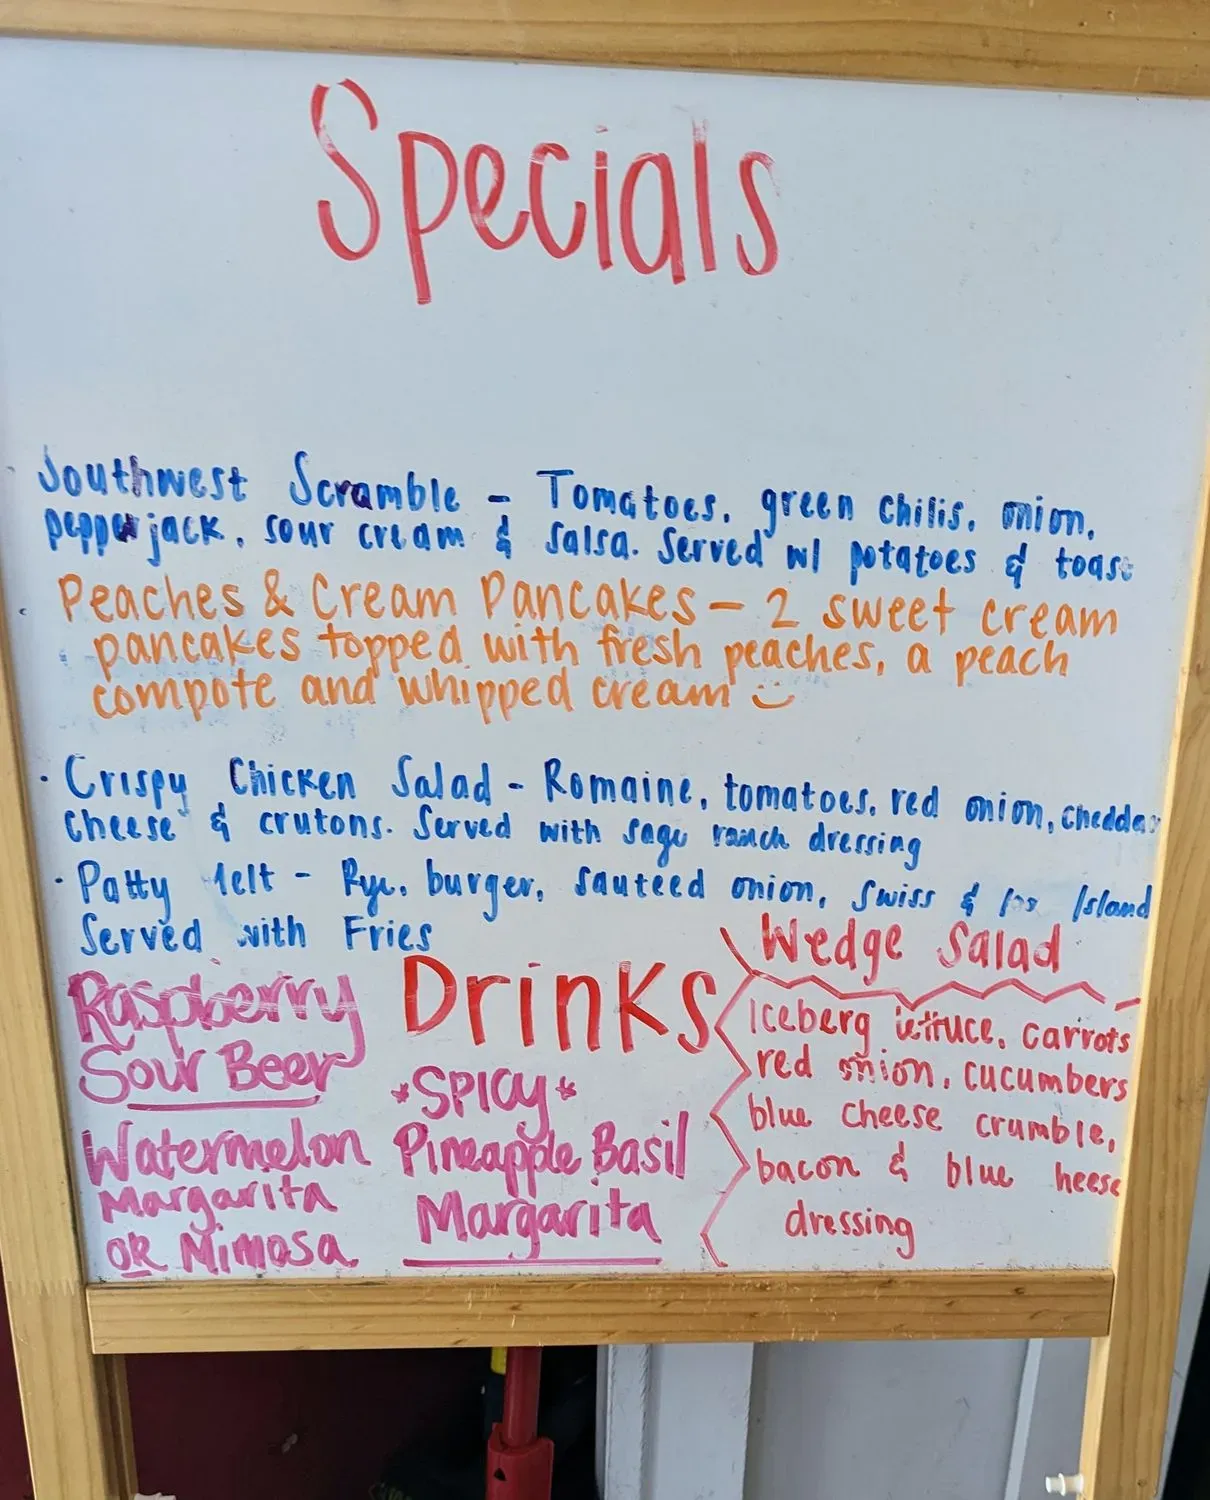 Specials
Southwest Scramble - Tomatoes, green chilis, onion,
pepperjack, sour cream & salsa. Served w/ potatoes & toast
Peaches & Cream Pancakes - 2 sweet cream
pancakes topped with fresh peaches, a peach
compote and whipped cream
· Crispy Chicken Salad - Romaine, tomatoes, red onion, cheddar
cheese & crutons. Served with sage ranch dressing
· Patty Melt - Rye, burger, sauteed onion, Swiss & Island
Served with Fries
Raspberry
Sour Beer
Watermelon
Margarita
OR Mimosa
Drinks
*SPICY*
Pineapple Basil
Margarita
Wedge Salad
Iceberg lettuce, carrots
red onion, cucumbers
blue cheese crumble,
bacon & blue heese
dressing